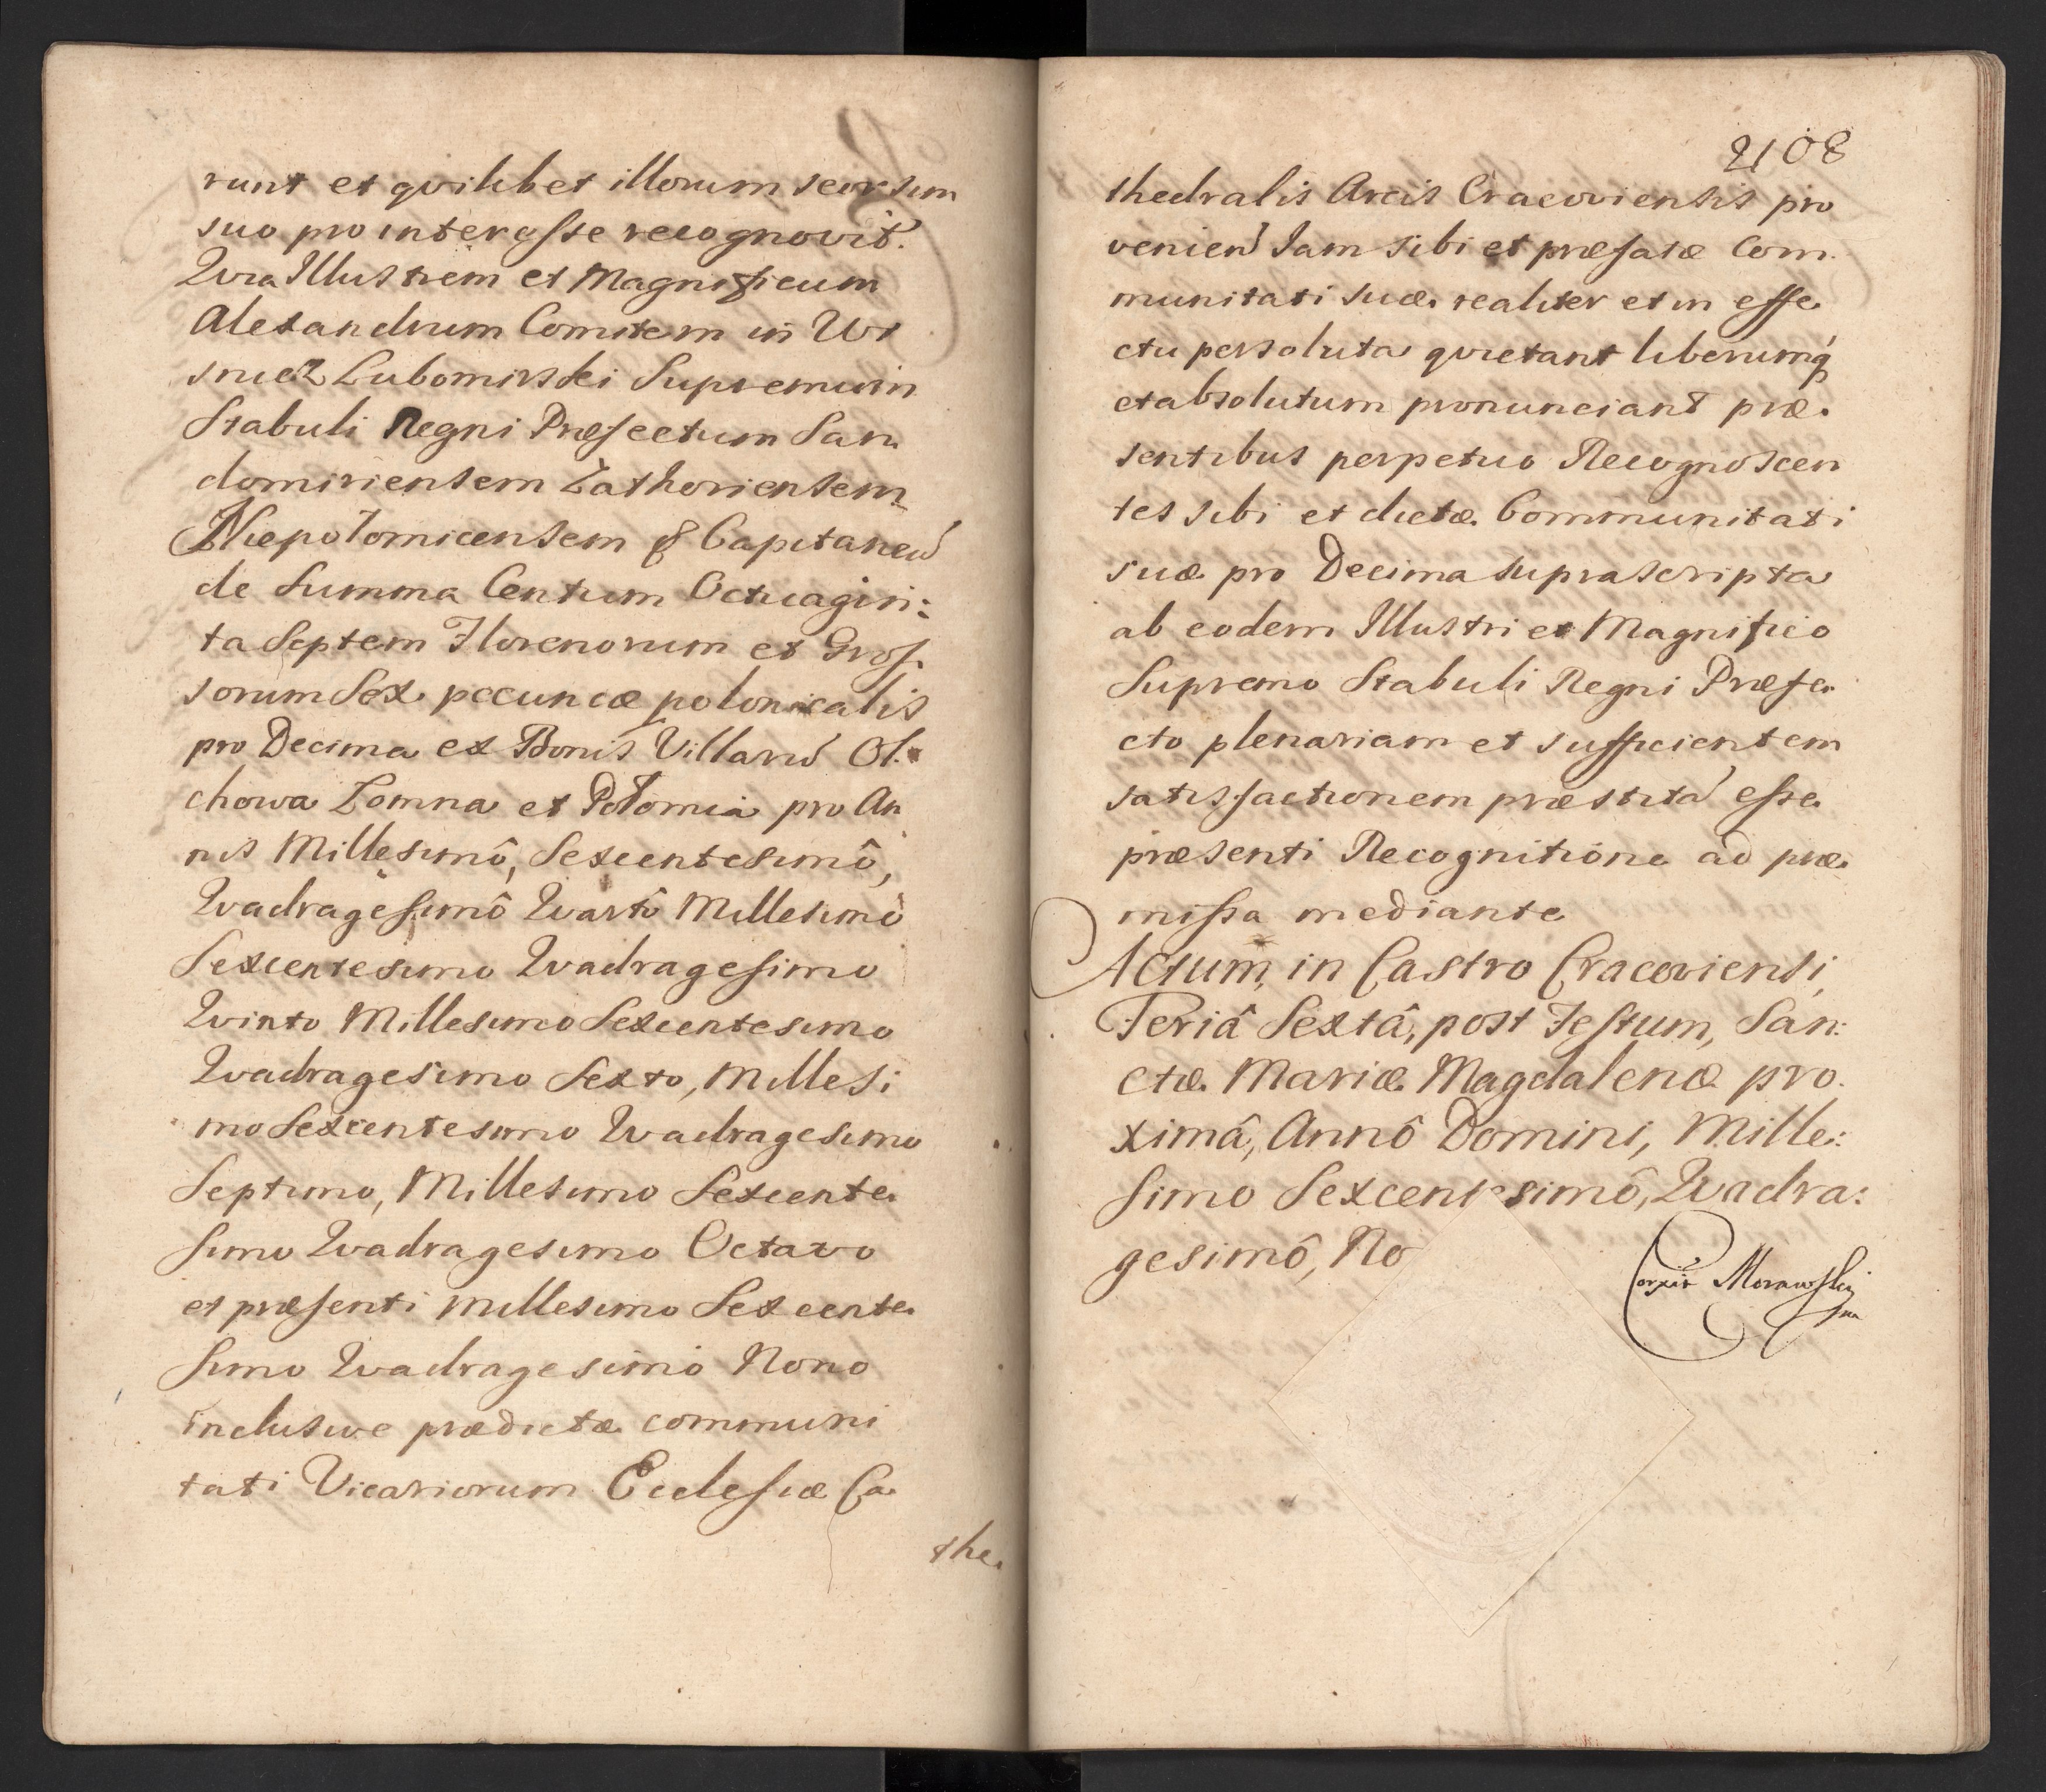 runt et qvilibet illorum seorsim
suo pro interesse recognovit.
Qvia Illustrem et Magnificum
Alexandrum Comitem in Wi
snicz Lubomirski Supremum
Stabuli Regni Præfectum San
domiriensem Zathoriensem
Niepołomicensem & Capitaneu
de Summa Centum Octuagin:
ta Septem Florenorum et Gros
sorum Sex pecuniæ polonicalis
pro Decima ex Bonis Villaru Ol
chowa Łomna et Połomia pro An
nis Millesimô, Sexcentesimô,
Qvadragesimô Qvartô Millesimô
Sexcentesimo Qvadragesimo
Qvinto Millesimo Sexcentesimo
Qvadragesimo Sexto, Millesi
mo Sexcentesimo Qvadragesimo
Septimo, Millesimo Sexcente
simo Qvadragesimo Octavo
et præsenti millesimo Sexcente
simo Qvadragesimo Nono
inclusive prædictæ communi
tati Vicariorum Ecclesiæ Ca
the
2108
thedralis Arcis Cracoviensis pro
venien Iam sibi et præfatæ Com
munitati suæ realiter et in effe
ctu persoluta qvietant liberumq
et absolutum pronunciant præ
sentibus perpetuo Recognoscen
tes sibi et dictæ Communitati
suæ pro Decima suprascripta
ab eodem Illustri et Magnifico
Supremo Stabuli Regni Præfe
cto plenariam et sufficientem
satisfactionem præstita esse
præsenti Recognitione ad præ
missa mediante
Actum, in Castro Cracoviensi,
Feriâ Sextâ, post Festum, San:
ctæ Mariæ Magdalenæ pro
ximâ, Annô Domini, Mille:
simo Sexcentesimô, Qvadra:
gesimô, No
Correxit Morawski